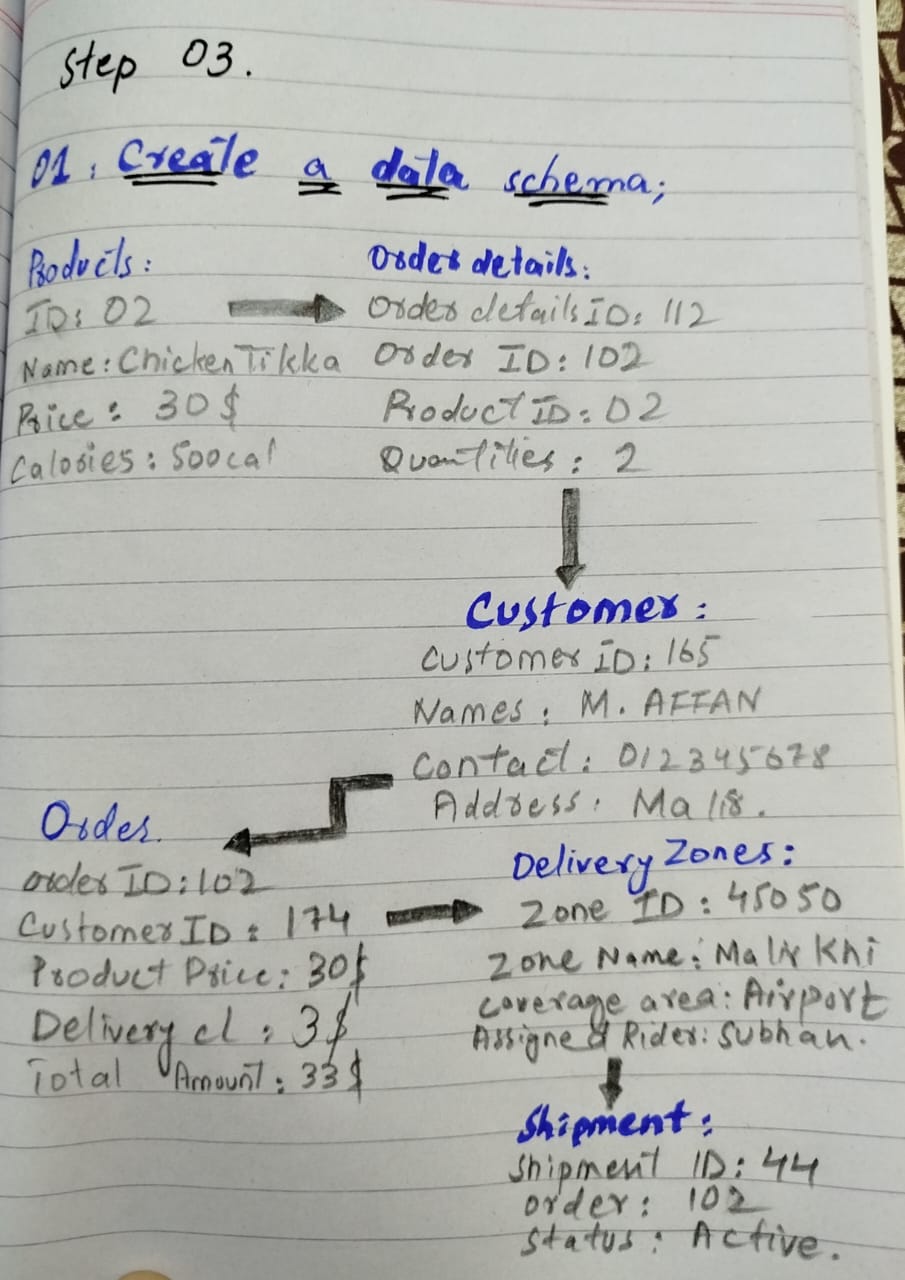 Step 03.
01. Create a data schema;
Products:
ID: 02
Name: Chicken Tikka
Price: 30$
Calories: 500cal
Order details:
Order details ID: 112
Order ID: 102
Product ID: 02
Quantities: 2
Customer:
Customer ID: 165
Names: M. AFFAN
Contact: 012345678
Address: Malir.
Order.
order ID: 102
Customer ID: 174
Product Price: 30$
Delivery cl: 3$
Total Amount: 33$
Delivery Zones:
Zone ID: 45050
Zone Name: Malir Khi
Coverage area: Airport
Assigned Rider: Subhan.
Shipment:
Shipment ID: 44
order: 102
Status: Active.